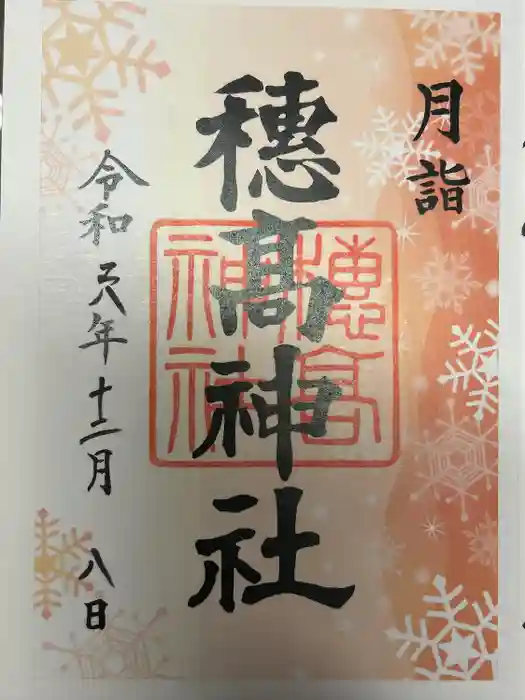 月詣
穂髙神社
穂高
神社
令和六年十二月八日